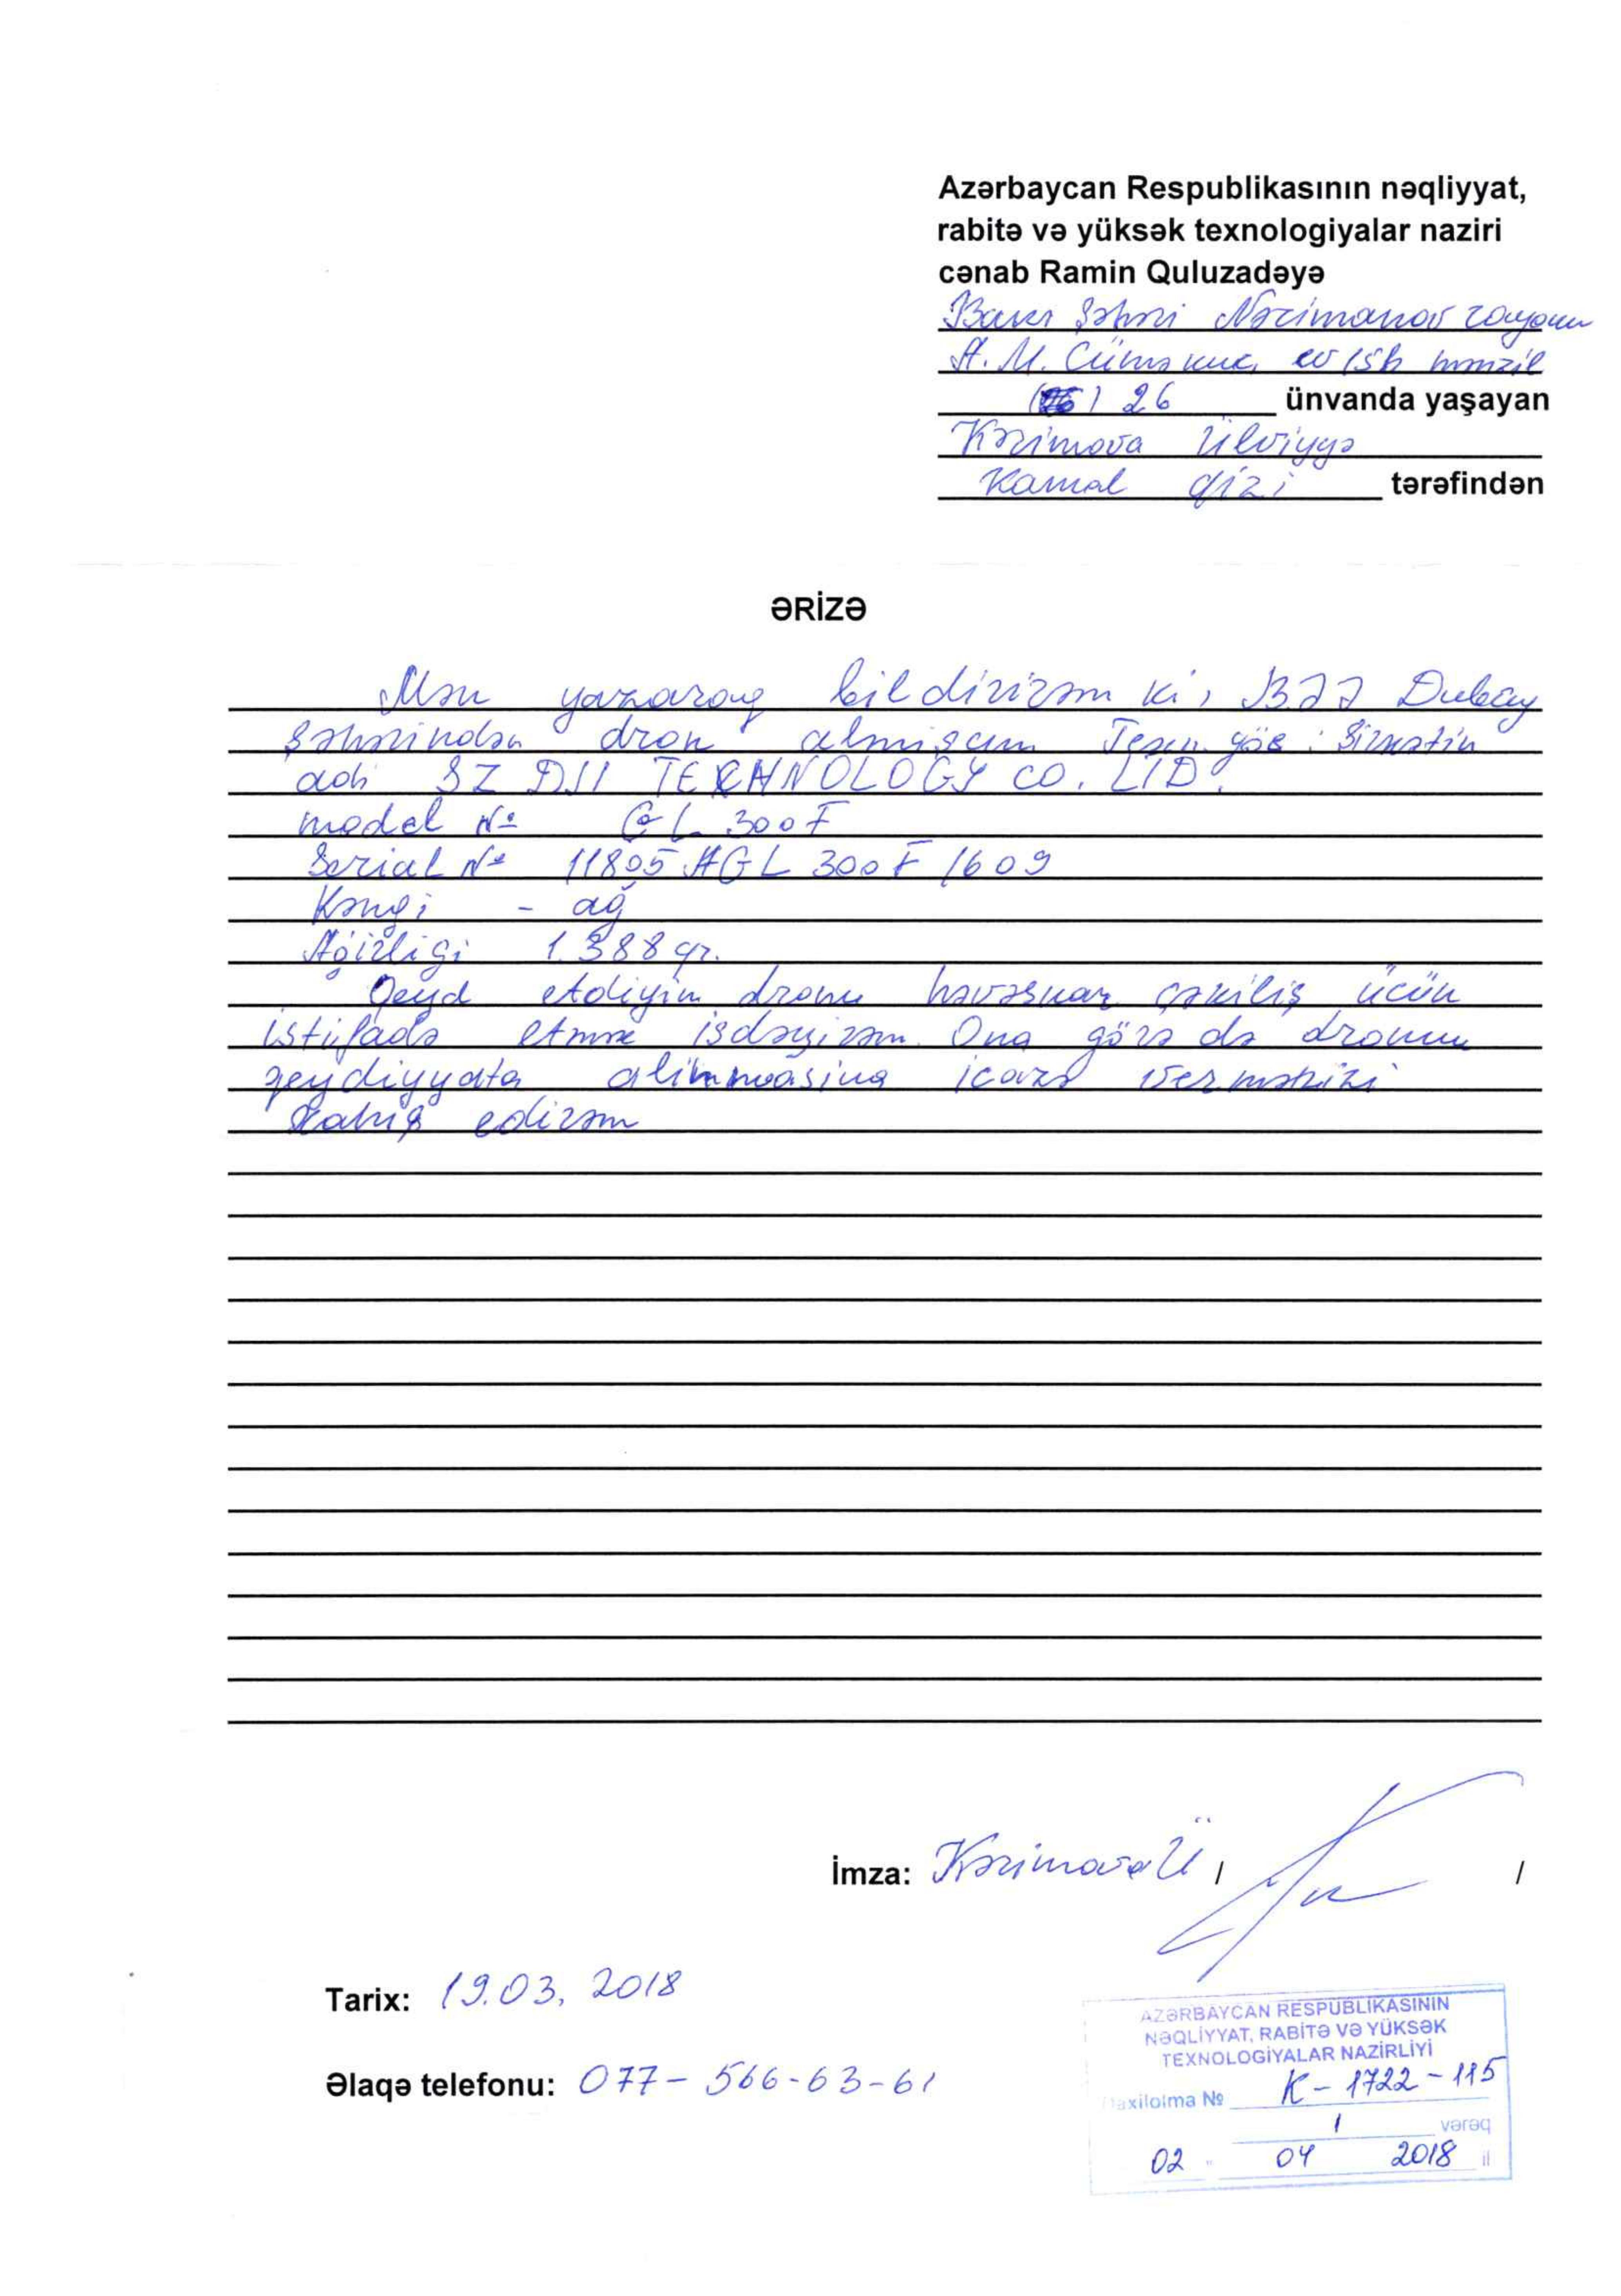 Azərbaycan Respublikasının nəqliyyat,
rabitə və yüksək texnologiyalar naziri
cənab Ramin Quluzadəyə
Bakı şəhəri Nərimanov rayonu
A. M. Cümə küç, ev 15b mənzil
26 ünvanda yaşayan
Kərimova Ülviyyə
Kamal qizi tərəfindən
ƏRİZƏ
Mən yazaraq bildirirəm ki, BƏƏ Dubay
şəhərindən dron almişam Texn. gös: Şirkətin
adı SZ DJI TECHNOLOGY CO. LTD.
model № GL 300F
Serial № 11805 AGL 300F 1609
Rəngi - ağ
Ağirligi 1.388 qr.
Qeyd etdiyim dronu həvəskar çəkiliş üçün
istifadə etmək isdəyirəm. Ona görə də dronun
qeydiyyata alinmasina icazə verməkizi
xahiş edirəm
İmza: Kərimova Ü / /
Tarix: 19.03.2018
Əlaqə telefonu: 077-566-63-61
AZƏRBAYCAN RESPUBLİKASININ
NƏQLİYYAT, RABİTƏ VƏ YÜKSƏK
TEXNOLOGİYALAR NAZİRLİYİ
Daxilolma № K-1722-115
1 vərəq
02 " 04 2018 il